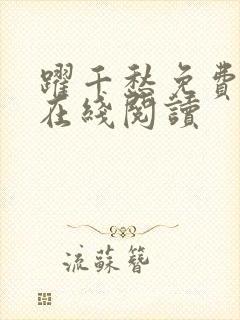 躍千愁免費
在綫閱讀
流蘇簪